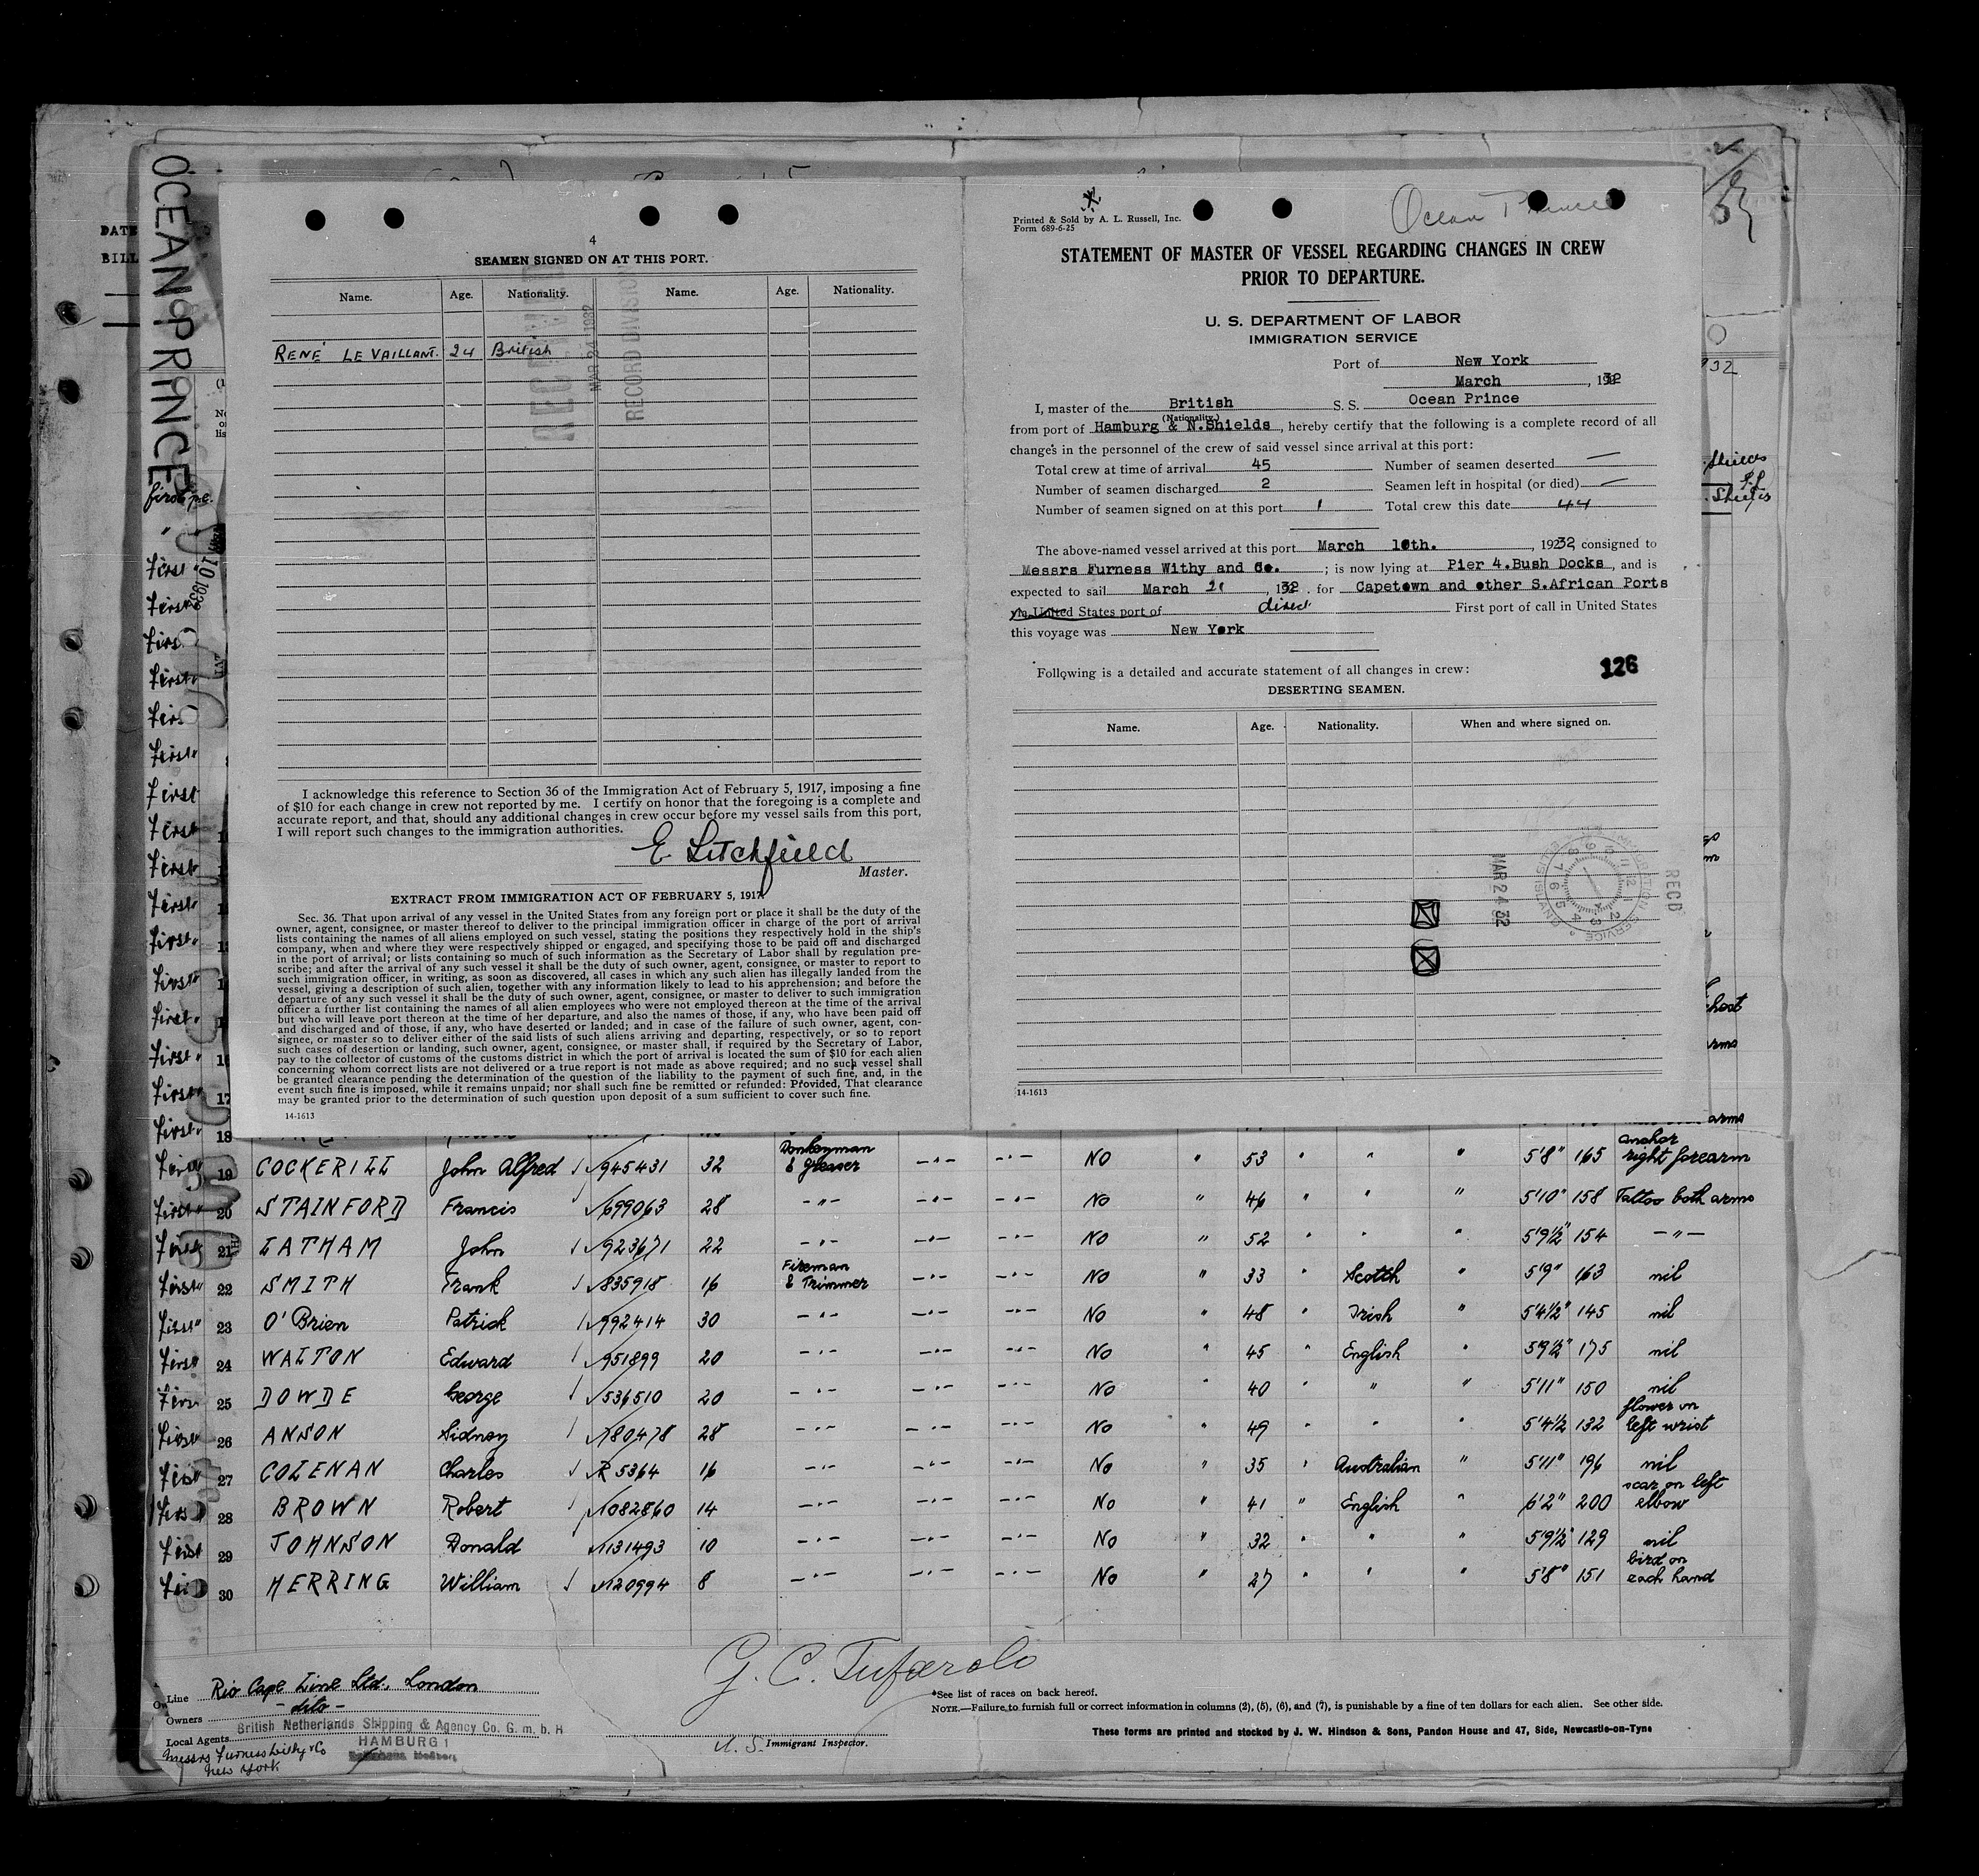 OCEAN PRINCE
4
SEAMEN SIGNED ON AT THIS PORT.
Name. Age. Nationality. Name. Age. Nationality.
RENÉ LE VAILLANT. 24 British
RECEIVED
MAR 24 1932
RECORD DIVISION
I acknowledge this reference to Section 36 of the Immigration Act of February 5, 1917, imposing a fine
of $10 for each change in crew not reported by me. I certify on honor that the foregoing is a complete and
accurate report, and that, should any additional changes in crew occur before my vessel sails from this port,
I will report such changes to the immigration authorities.
E. Litchfield
Master.
EXTRACT FROM IMMIGRATION ACT OF FEBRUARY 5, 1917
Sec. 36. That upon arrival of any vessel in the United States from any foreign port or place it shall be the duty of the
owner, agent, consignee, or master thereof to deliver to the principal immigration officer in charge of the port of arrival
lists containing the names of all aliens employed on such vessel, stating the positions they respectively hold in the ship's
company, when and where they were respectively shipped or engaged, and specifying those to be paid off and discharged
in the port of arrival; or lists containing so much of such information as the Secretary of Labor shall by regulation pre-
scribe; and after the arrival of any such vessel it shall be the duty of such owner, agent, consignee, or master to report to
such immigration officer, in writing, as soon as discovered, all cases in which any such alien has illegally landed from the
vessel, giving a description of such alien, together with any information likely to lead to his apprehension; and before the
departure of any such vessel it shall be the duty of such owner, agent, consignee, or master to deliver to such immigration
officer a further list containing the names of all alien employees who were not employed thereon at the time of the arrival
but who will leave port thereon at the time of her departure, and also the names of those, if any, who have been paid off
and discharged and of those, if any, who have deserted or landed; and in case of the failure of such owner, agent, con-
signee, or master so to deliver either of the said lists of such aliens arriving and departing, respectively, or so to report
such cases of desertion or landing, such owner, agent, consignee, or master shall, if required by the Secretary of Labor,
pay to the collector of customs of the customs district in which the port of arrival is located the sum of $10 for each alien
concerning whom correct lists are not delivered or a true report is not made as above required; and no such vessel shall
be granted clearance pending the determination of the question of the liability to the payment of such fine, and, in the
event such fine is imposed, while it remains unpaid; nor shall such fine be remitted or refunded: Provided, That clearance
may be granted prior to the determination of such question upon deposit of a sum sufficient to cover such fine.
14-1613
Ocean Prince
Printed & Sold by A. L. Russell, Inc.
Form 689-6-25
STATEMENT OF MASTER OF VESSEL REGARDING CHANGES IN CREW
PRIOR TO DEPARTURE.
U. S. DEPARTMENT OF LABOR
IMMIGRATION SERVICE
Port of New York
March , 1932
I, master of the British S. S. Ocean Prince
(Nationality.)
from port of Hamburg & N.Shields, hereby certify that the following is a complete record of all
changes in the personnel of the crew of said vessel since arrival at this port:
Total crew at time of arrival 45 Number of seamen deserted —
Number of seamen discharged 2 Seamen left in hospital (or died) —
Number of seamen signed on at this port 1 Total crew this date 44
The above-named vessel arrived at this port March 10th. , 19232, consigned to
Messrs Furness Withy and Co. ; is now lying at Pier 4.Bush Docks, and is
expected to sail March 21 , 1932 . for Capetown and other S.African Ports
via United States port of direct First port of call in United States
this voyage was New York
Following is a detailed and accurate statement of all changes in crew: 126
DESERTING SEAMEN.
Name. Age. Nationality. When and where signed on.
RECD
MAR 24 32
IMMIGRATION SERVICE
ELLIS ISLAND
14-1613
19 COCKERILL John Alfred 945431 32 Donkeyman & Greaser -"- -"- NO " 53 " " 5'8" 165 anchor right forearm
20 STAINFORD Francis 699063 28 -"- -"- -"- NO " 46 " " " 5'10" 158 Tattoo both arms
21 LATHAM John 923671 22 -"- -"- -"- NO " 52 " " " 5'9½" 154 -"-
22 SMITH Frank 835918 16 Fireman & Trimmer -"- -"- NO " 33 " Scotch " 5'9" 163 nil
23 O'Brien Patrick 992414 30 -"- -"- -"- NO " 48 " Irish " 5'4½" 145 nil
24 WALTON Edward 951899 20 -"- -"- -"- NO " 45 " English " 5'9½" 175 nil
25 DOWDE George 536510 20 -"- -"- -"- NO " 40 " " " 5'11" 150 nil
26 ANSON Sidney 180478 28 -"- -"- -"- No " 49 " " " 5'4½ 132 flower on left wrist
27 COLENAN Charles R 5364 16 -"- -"- -"- No " 35 " Australian " 5'11" 196 nil
28 BROWN Robert 1082860 14 -"- -"- -"- No " 41 " English " 6'2" 200 scar on left elbow
29 JOHNSON Donald 1131493 10 -"- -"- -"- No " 32 " " " 5'9½" 129 nil
30 HERRING William 1120994 8 -"- -"- -"- No " 27 " " " 5'8" 151 bird on each hand
Line Rio Cape Line Ltd., London
Owners - dito -
Local Agents British Netherlands Shipping & Agency Co. G. m. b. H
HAMBURG 1
Messrs Furness Withy & Co
New York
G. C. Tufarolo
U. S. Immigrant Inspector.
*See list of races on back hereof.
NOTE.—Failure to furnish full or correct information in columns (2), (5), (6), and (7), is punishable by a fine of ten dollars for each alien. See other side.
These forms are printed and stocked by J. W. Hindson & Sons, Pandon House and 47, Side, Newcastle-on-Tyne